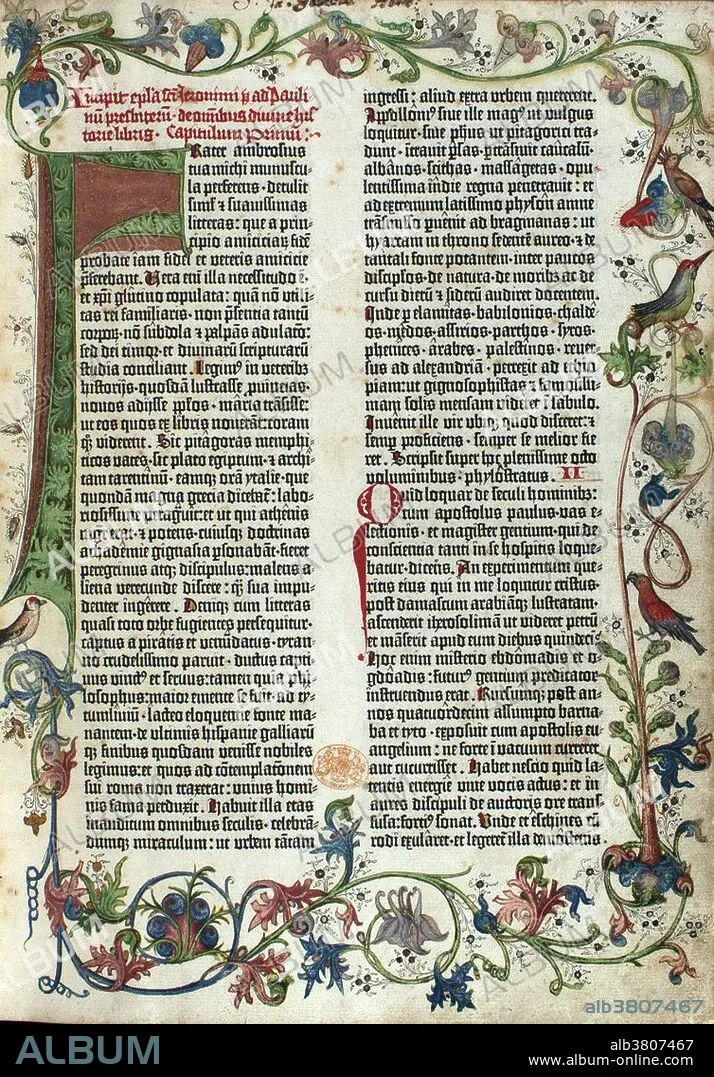 Incipit epl̄a sc̄i Jeronimi p̄ ad Pauli
nū presbiterū · de omnibus diuine his
torie libris · Capitulum Primū :
Frater ambrosius
tua michi munuscu-
la perferens · detulit
siml̄ ⁊ suauissimas
litteras : que a prin-
cipio amiciciaꝝ fidē
probate iam fidei et veteris amicicie
p̄ferebant · Vera eni̅ illa necessitudo ē ·
et xp̄i glutino copulata : quā nō vtili-
tas rei familiaris · non p̄sentia tantū
corpoꝝ · nō subdola ⁊ palpās adulatō :
sed dei timor · et diuinarū scripturarū
studia conciliant · Legim⁹ in veterib⁹
historijs · quosdā lustrasse ꝓuincias ·
nouos adijsse pp̄los · maria trāsisse :
ut eos quos ex libris nouerāt : coram
qꝫ viderent · Sic pitagoras memphi-
ticos vates · sic plato egiptum · ⁊ archi-
tam tarentinū · eamqꝫ orā ytalie · que
quondā magna grecia dicebat̄ : labo-
riosissime peragrauit : et ut qui athenis
mgr̄ erat · ⁊ potens · cuiusqꝫ doctrinas
achademie gignasia ꝑsonabāt · fieret
peregrinus atqꝫ discipulus : malens a-
liena verecunde discere : qꝫ sua impu-
denter ingerere · Deniqꝫ cum litteras
quasi toto orbe fugientes persequitur ·
captus a piratis et venūdatus · tyran-
no crudelissimo paruit · ductus capti-
uus vinct⁹ et seruus : tamen quia phi-
losophus : maior emente se fuit · ad ty-
tumliuiū · lacteo eloquentie fonte ma-
nantem · de ultimis hispanie galliarū
qꝫ finibus quosdam venisse nobiles
legimus : et quos ad cōtemplatōnem
sui roma non traxerat : unius homi-
nis fama perduxit · Habuit illa etas
inauditum omnibus seculis · celebrā-
dumqꝫ miraculum : ut urbem tātam
ingressi : aliud extra urbem quererent ·
Appolloni⁹ siue ille mag⁹ ut vulgus
loquitur · siue ph̄us · ut pitagorici tra-
dunt · ītrauit ꝑsas · ꝑtrāsiuit caucasū ·
albanos · scithas · massagetas · opu-
lentissima indie regna penetrauit : et
ad extremum latissimo physon amne
trāsmisso ꝑuenit ad bragmanas : ut
hyarcam in throno sedentē aureo · ⁊ de
tantali fonte potantem · inter paucos
discipl̄os · de natura · de moribꝫ ac de
cursu dierū ⁊ siderū audiret docentem ·
Inde ꝑ elamitas · babilonios · chalde-
os · medos · assirios · parthos · syros ·
phenices · arabes · palestinos · reuer-
sus ad alexandriā · perrexit ad ethio-
piam : ut gignosophistas ⁊ famosissi-
mam solis mensam videret ī sabulo ·
Inuenit ille vir vbiqꝫ quod disceret : ⁊
semp̄ proficiens · semper se melior fie-
ret · Scripsit super hoc plenissime octo
voluminibus · phylostratus · II
Quid loquar de seculi hominibꝫ :
cum apostolus paulus · vas e-
lectionis · et magister gentium · qui de
conscientia tanti in se hospitis loque-
batur · dicens · An experimentum que-
ritis eius qui in me loquitur cristus ·
post damascum arabiāqꝫ lustratam ·
ascenderit iherosolimā ut videret petrū
et māserit apud eum diebus quindeci̅ ·
Hoc enim misterio ebdōmadis et o-
gdoadis : futur⁹ gentium predicator
instruendus erat · Rursumqꝫ post an-
nos quatuordecim assumpto barna-
ba et tyto · exposuit cum apostolis eu-
angelium : ne forte ī vacuum curreret
aut cucurrisset · Habet nescio quid la-
tentis energie viue vocis actus : et in
aures discipuli de auctoris ore trans-
fusa : forti⁹ sonat · Unde et eschines cū
rodi exularet · et legeret̄ illa demostenis
ALBUM
alb3807467
ALBUM
alb3807467
www.album-online.com